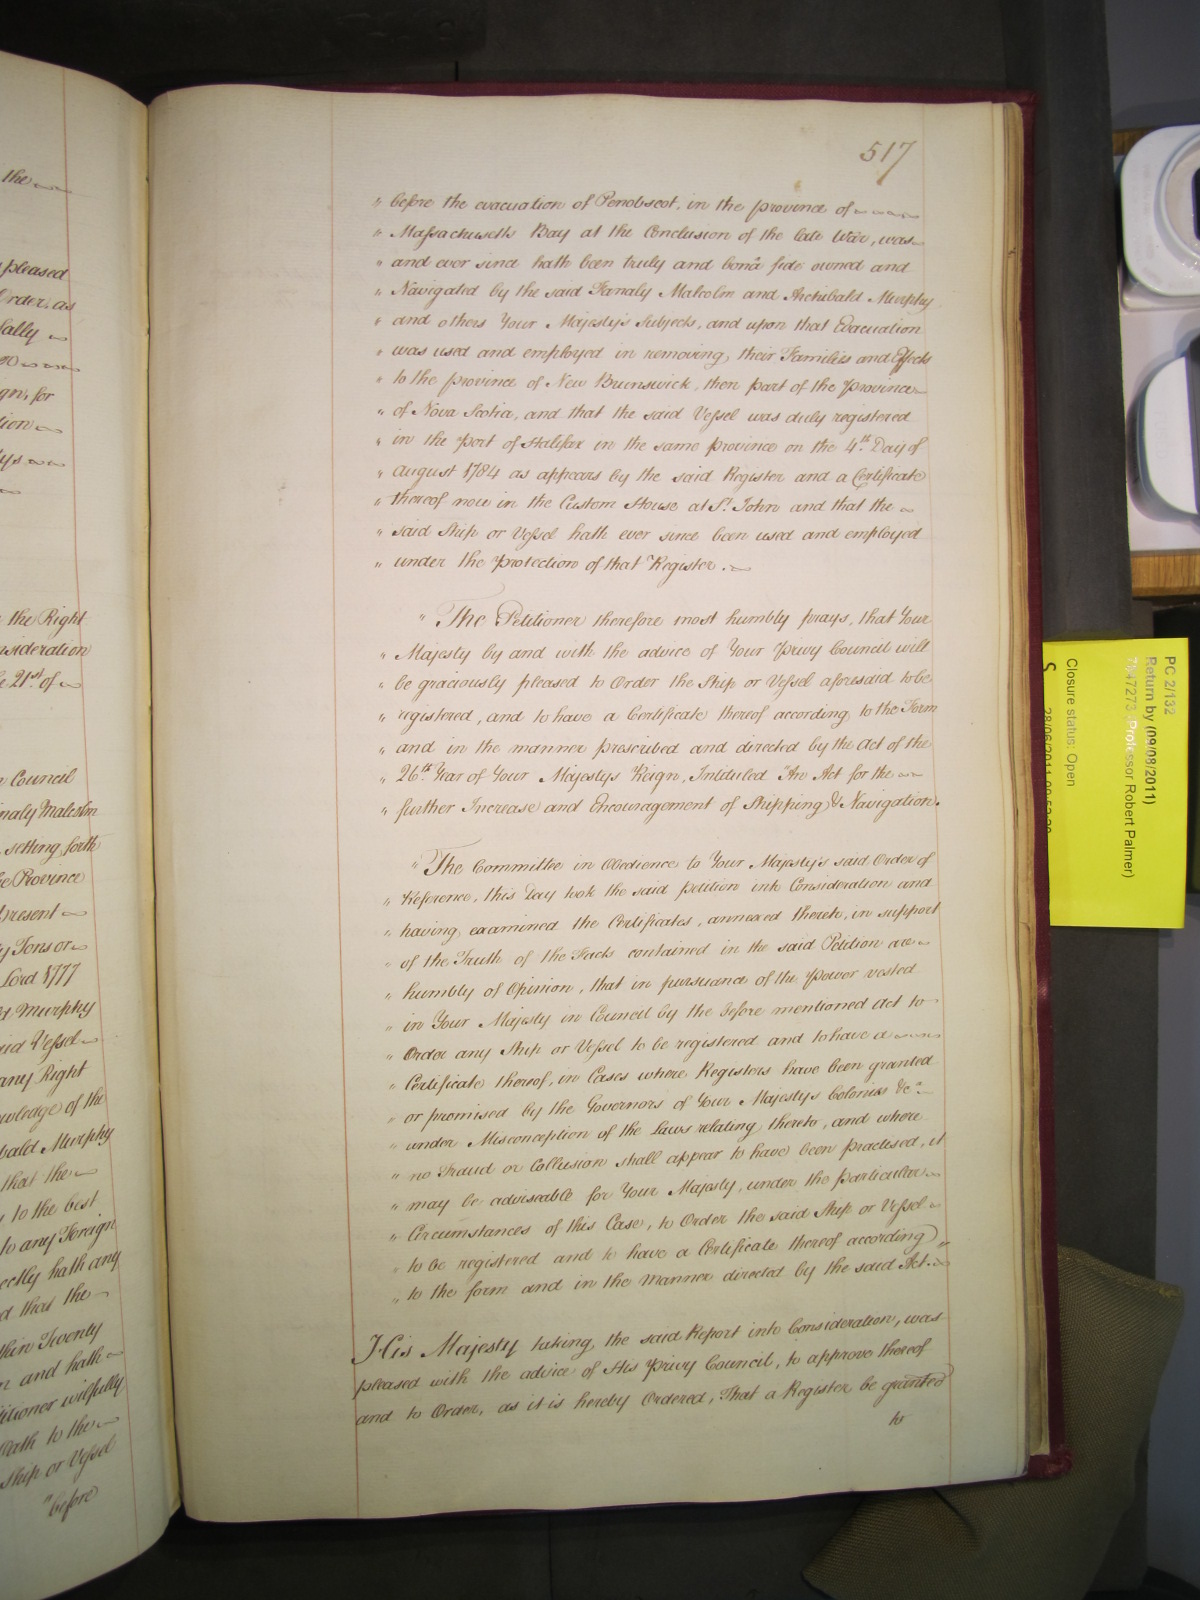 the
pleased
Order, as
sally
gn, for
tion
the Right
nsideration
e 21st. of
Council
naly Malcolm
setting forth
e Province
present
y Tons or
Lord 1777
d Murphy
aid Vessel
any Right
owledge of the
bald Murphy
that the
to the best
to any Foreign
ectly hath any
d that the
thin Twenty
n and hath
titioner wilfully
Oath to the
Ship or Vessel
"before
517
" before the evacuation of Penobscot, in the province of
" Massachusetts Bay at the Conclusion of the late War, was
" and ever since hath been truly and bonâ fide owned and
" Navigated by the said Fanaly Malcolm and Archibald Murphy
" and others Your Majesty's Subjects, and upon that Evacuation
" was used and employed in removing their Families and Effects
" to the province of New Brunswick, then part of the Province
" of Nova Scotia, and that the said Vessel was duly registered
" in the port of Halifax in the same Province on the 4th. Day of
" August 1784 as appears by the said Register and a Certificate
" thereof now in the Custom House at St. John and that the
" said Ship or Vessel hath ever since been used and employed
" under the Protection of that Register.
" The Petitioner therefore most humbly prays, that Your
" Majesty by and with the advice of Your Privy Council will
" be graciously pleased to Order the Ship or Vessel aforesaid to be
" registered, and to have a Certificate thereof according to the Form
" and in the manner prescribed and directed by the Act of the
" 26th. Year of Your Majestys Reign, Intituled "An Act for the
" further Increase and Encouragement of Shipping & Navigation.
" The Committee in Obedience to Your Majesty's said Order of
" Reference, this Day took the said petition into Consideration and
" having examined the Certificates, annexed thereto, in support
" of the Truth of the Facts contained in the said Petition are
" humbly of Opinion, that in pursuance of the Power vested
" in Your Majesty in Council by the before mentioned Act to
" Order any Ship or Vessel to be registered and to have a
" Certificate thereof, in Cases where Registers have been granted
" or promised by the Governors of Your Majestys Colonies &ca.
" under Misconception of the Laws relating thereto, and where
" no Fraud or Collusion shall appear to have been practised, it
" may be adviseable for Your Majesty, under the particular
" Circumstances of this Case, to Order the said Ship or Vessel
" to be registered and to have a Certificate thereof according
" to the form and in the Manner directed by the said Act.
His Majesty taking the said Report into Consideration, was
pleased with the advice of His Privy Council, to approve thereof
and to Order, as it is hereby Ordered, That a Register be granted
to
PC 2/132
Return by (09/08/2011)
Professor Robert Palmer)
Closure status: Open